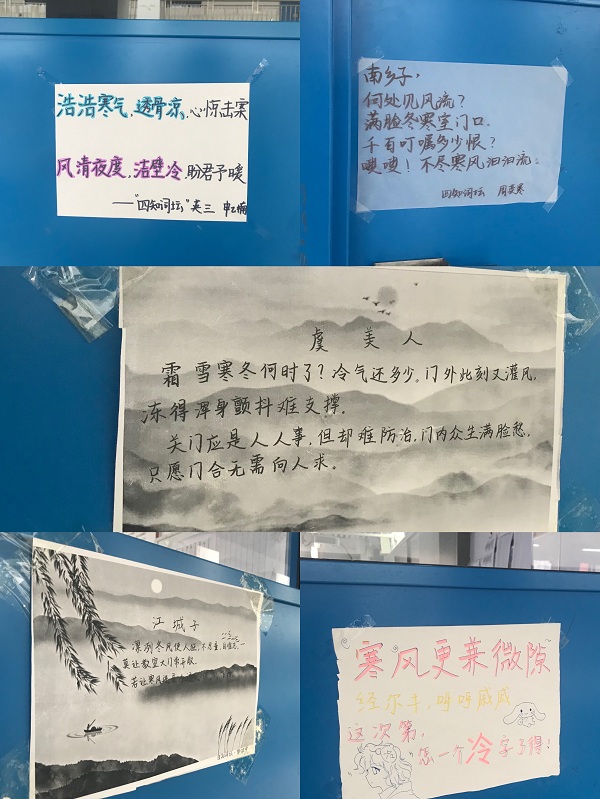 浩浩寒气,透骨凉,心惊击案
风清夜度,洁壁冷,盼君予暖
——"四知词坛"英三
南乡子,
何处见风流?
满脸冬寒室门口。
千百叮嘱多少恨?
嗖嗖!不尽寒风汩汩流。
四知词坛
虞美人
霜雪寒冬何时了?冷气还多少。门外此刻又灌风,
冻得浑身颤抖难支撑。
关门应是人人事,但却难防治,门内众生满脸愁,
只愿门合无需向人求。
江城子
凛冽冬风使人
莫让教室大门常开敞
若让寒风
寒风更兼微隙
经尔手,呼呼戚戚
这次第,
怎一个冷字了得!